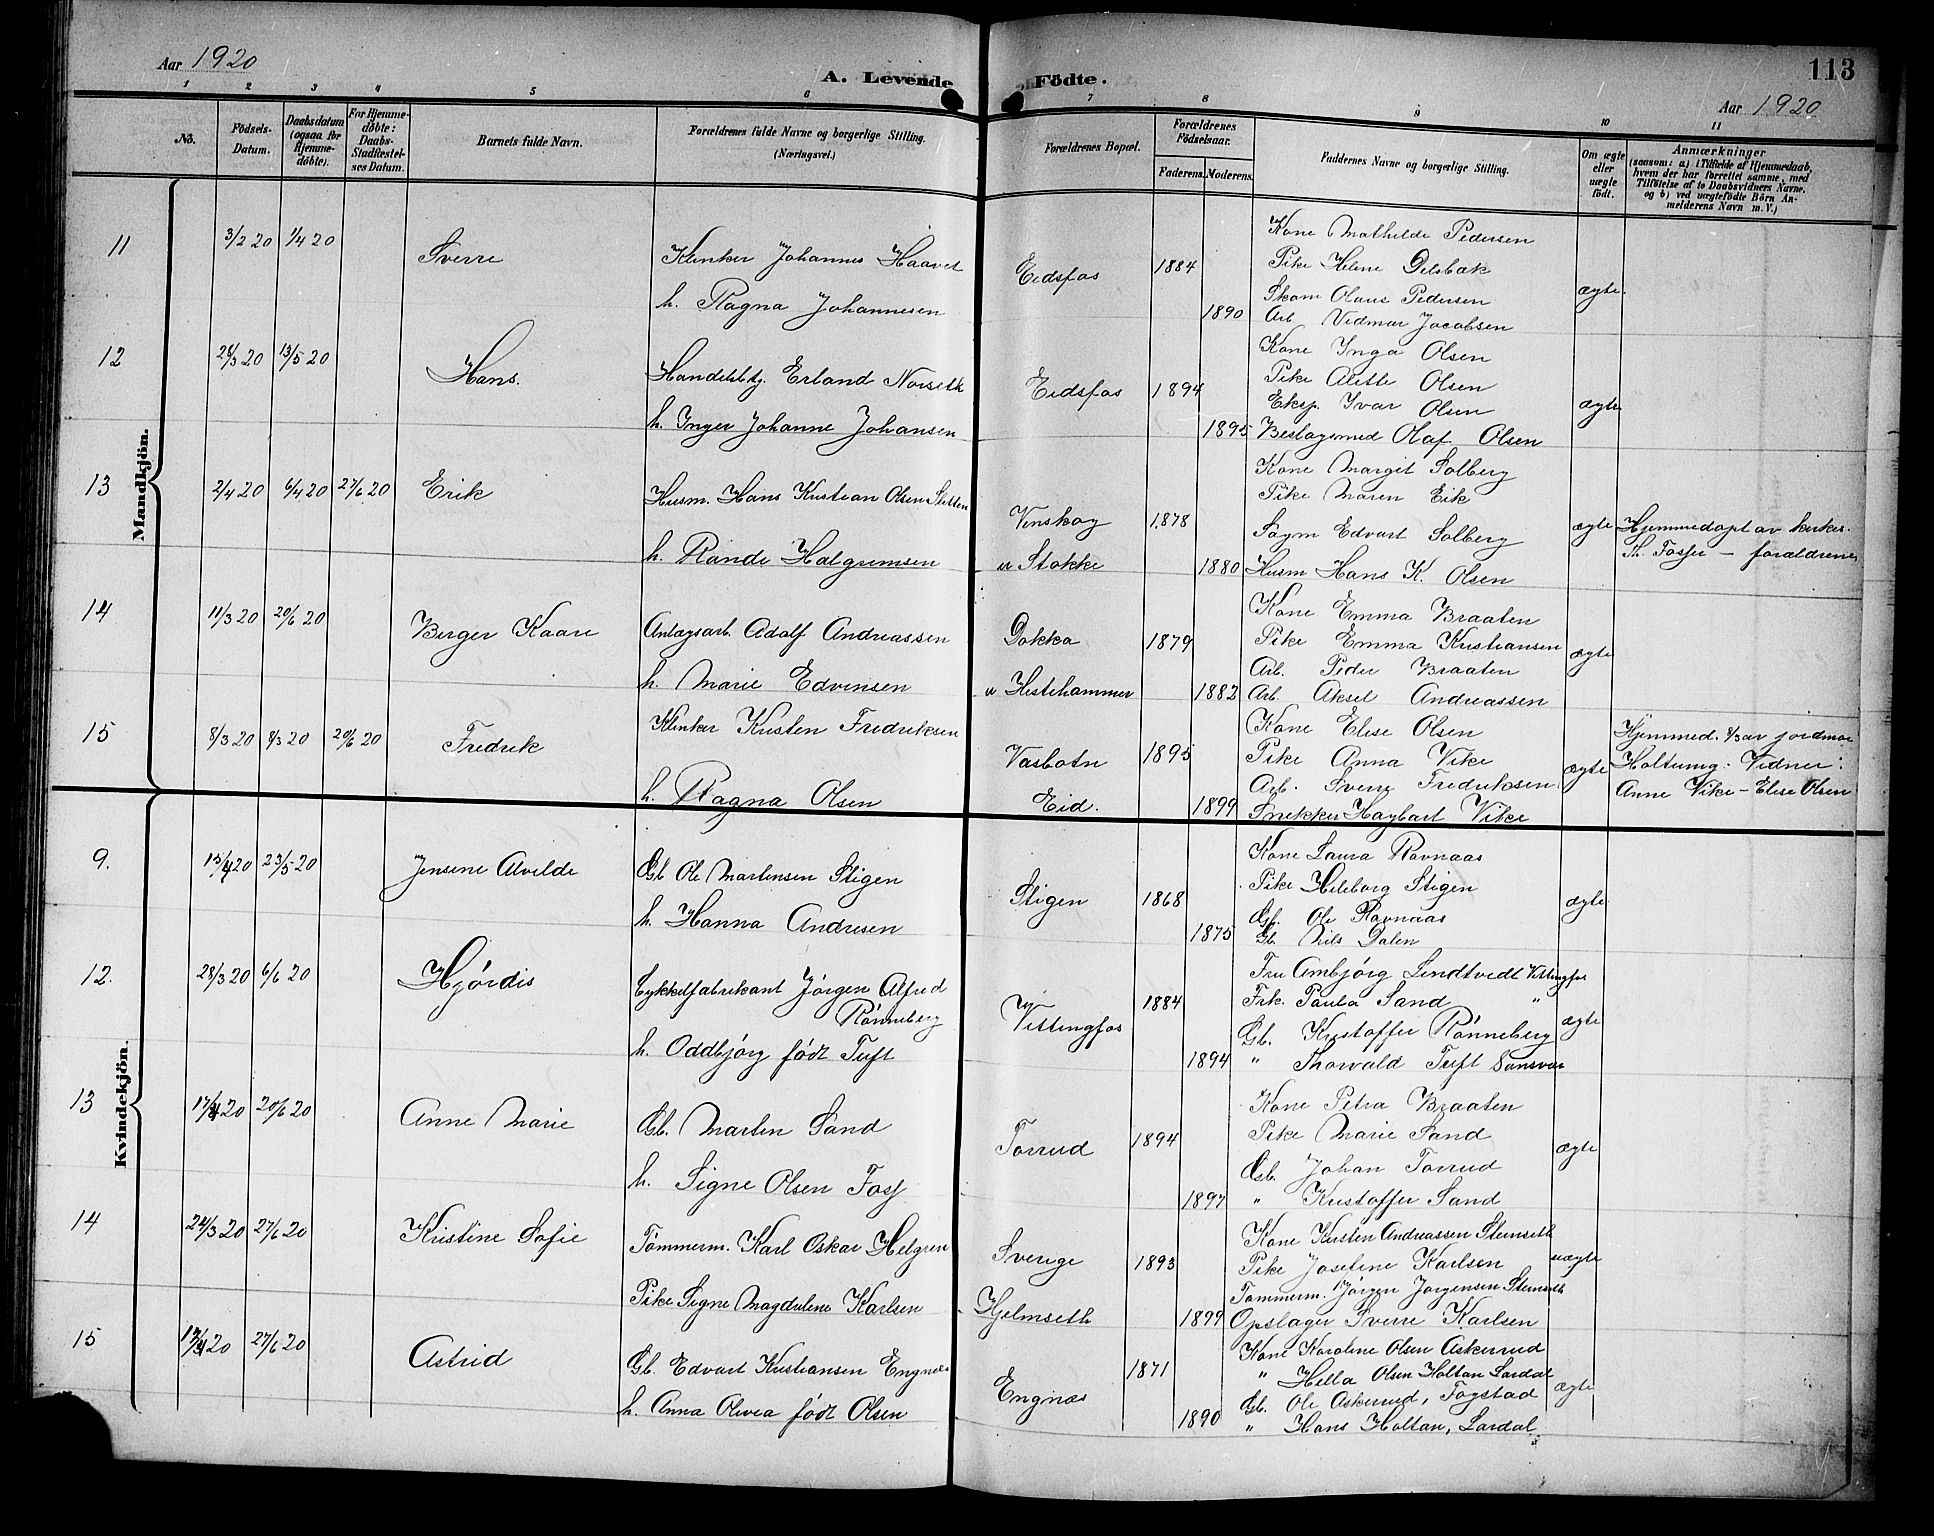 Aar 1920
A. Levende Födte.
113
Aar 1920
1 2 3 4 5 6 7 8 9 10 11
No.
Födsels-Datum.
Daabsdatum (ogsaa for Hjemmedöbte).
For Hjemmedöbte: Daabs-Stadfæstelses Datum.
Barnets fulde Navn.
Forældrenes fulde Navne og borgerlige Stilling. (Næringsvei.)
Forældrenes Bopæl.
Forældrenes Födselsaar.
Faderens. Moderens.
Faddernes Navne og borgerlige Stilling.
Om ægte eller uægte födt.
Anmærkninger
(saasom: a) i Tilfælde af Hjemmedaab,
hvem der har forrettet samme, med
Tilföielse af to Daabsvidners Navne.
og b) ved uægtefödte Börn An-
melderens Navn m. V.)
Mandkjön.
11 3/2 20 1/4 20 Sverre Klinker Johannes Haavet Eidsfos 1884 Kone Mathilde Pedersen
Pike Helene Delsbæk
h. Ragna Johannesen 1890 Skom Olaus Pedersen ægte.
Arb Vidmar Jacobsen
12 28/3 20 13/5 20 Hans. Handelsbtj. Erland Norseth Eidsfos 1894 Kone Inga Olsen
Pike Alette Olsen
h. Inger Johanne Johansen 1895 Eksp. Ivar Olsen ægte
Beslagsmed Olaf Olsen
13 2/4 20 6/4 20 27/6 20 Erik Husm. Hans Kristian Olsen Sletten Vinskog 1878 Kone Margit Solberg
Pike Maren Eik
h. Rande Halgrimsen u Stokke 1880 Sagm Edvart Solberg ægte Hjemmedøpt av kirkes.
Husm Hans K. Olsen Th. Fosser – forældrene
14 11/3 20 20/6 20 Birger Kaare Anlægsarb. Adolf Andreassen Dokka 1879 Kone Emma Braaten
Pike Emma Kristiansen
h. Marie Edvinsen u Hestehammer 1882 Arb. Peder Braaten ægte
Arb. Aksel Andreassen
15 8/3 20 8/3 20 20/6 20 Fredrik Klinker Kristen Fredriksen Vasbotn 1895 Kone Elise Olsen Hjemmed. 8/3 av jordmor
Pike Anna Vike Holtung. Vidner:
h. Ragna Olsen Eid. 1899 Arb. Sverre Fredriksen ægte Anne Vike – Elise Olsen
Snekker Hagbart Vike
Kvindekjön.
9. 15/4 20 23/5 20 Jensine Alvilde Gb Ole Martinsen Stigen Stigen 1868 Kone Laura Ravnaas
Pike Hileborg Stigen
h. Hanna Andresen 1875 Gb. Ole Ravnaas ægte
Gb. Nils Dalen
12. 28/3 20 6/6 20 Hjørdis Sykkelfabrikant Jørgen Alfred Rønneberg Vittingfos 1884 Fru Ambjørg Lindtvedt Vittingfos
Frk. Paula Sand "
h. Oddbjørg født Tuft 1894 Gb. Kristoffer Rønneberg ægte
" Thorvald Tuft Sansvær
13 17/4 20 20/6 20 Anne Marie Gb. Martin Sand Torrud 1894 Kone Petra Braaten
Pike Marie Sand
h. Signe Olsen Foss 1897 Gb. Johan Torrud ægte
" Kristoffer Sand
14 24/3 20 27/6 20 Kristine Sofie Tømmerm. Karl Oskar Helgren Sverige 1893 Kone Kirsten Andreassen Stemseth
Pike Josefine Karlsen uægte
Pike Signe Magdalene Karlsen Hjelmseth 1899 Tømmerm. Jørgen Jørgensen Stemseth
Opslager Sverre Karlsen
15 17/4 20 27/6 20 Astrid Gb. Edvart Kristiansen Engnæs Engnæs 1871 Kone Karoline Olsen Askerud
" Hella Olsen Holtan Lardal
h. Anna Olivia født Olsen 1890 Gb. Ole Askerud, Fogstad ægte
" Hans Holtan, Lardal